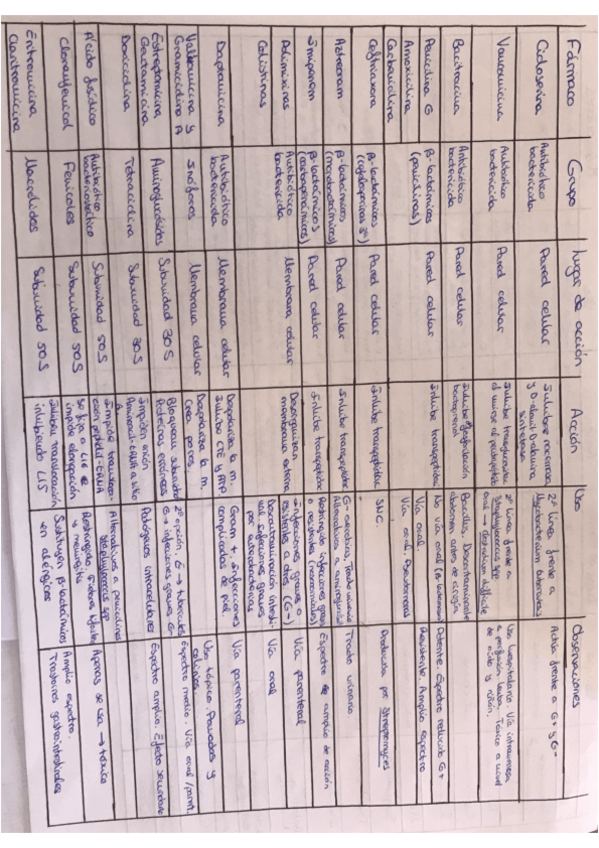 Fármaco Grupo Lugar de acción Acción Uso Observaciones
Cicloserina Antibiótico bactericida Pared celular Inhibe racemasa y D-alanil-D-alanina sintetasa 2ª línea frente a Mycobacterium tuberculosis Actúa frente a G+ y G-
Vancomicina Antibiótico bactericida Pared celular Inhibe transglucosidasa al unirse al 2ª línea frente a Staphylococcus spp oral → Clostridium difficile Uso hospitalario. Vía intravenosa a perfusión lenta. Tóxico a nivel de oído y riñón.
Bacitracina Antibiótico bactericida Pared celular Inhibe bactoprenol Bacillus. Descontaminante abdomen antes de cirugía
Penicilina G β-lactámicos (penicilinas) Pared celular Inhibe transpeptidasa No vía oral Potente. Espectro reducido G+
Amoxicilina Vía oral. Resistente. Amplio espectro
Carbenicilina Vía oral. Pseudomonas
Ceftriaxona β-lactámicos (cefalosporinas 3ª) Pared celular Inhibe transpeptidasa SNC. Producida por Streptomyces
Aztreonam β-lactámicos (monobactámicos) Pared celular Inhibe transpeptidasa G- aerobios. Alternativa a aminoglucósidos Tracto urinario
Imipenem β-lactámicos (carbapenémicos) Pared celular Inhibe transpeptidasa Restringido infecciones graves o resistentes Espectro amplio de acción
Polimixinas Antibiótico bactericida Membrana celular Desorganizan membrana externa Infecciones graves o resistentes a otros (G-) Vía parenteral
Colistinas Descontaminación intestinal infecciones graves por enterobacterias Vía oral
Daptomicina Antibiótico bactericida Membrana celular Despolariza la m. Inhibe Gram +. Infecciones complicadas de piel Vía parenteral
Valinomicina y Gramicidina A Ionóforos Membrana celular Despolariza la m. Crea poros. Uso tópico. Pomadas y colirios
Estreptomicina Gentamicina Aminoglucósidos Subunidad 30S Bloquean subunidad Proteínas erróneas 2ª opción, G- → Tuberculosis G- infecciones graves Espectro medio. Vía oral/parent.
Doxiciclina Tetraciclina Subunidad 30S Impiden unión Aminoacil-tRNA a sitio A Patógenos intracelulares Espectro amplio. Efecto secundario
Ácido fusídico Antibiótico bacteriostático Subunidad 50S Impide Alternativos a penicilinas Staphylococcus spp
Cloranfenicol Fenicoles Subunidad 50S Se fija a e impide elongación Restringido, fiebres tifoideas y meningitis Apenas se usa → tóxico
Eritromicina Claritromicina Macrólidos Subunidad 50S Inhiben translocación inhibiendo Sustituyen β-lactámicos en alérgicos Amplio espectro. Trastornos gastrointestinales